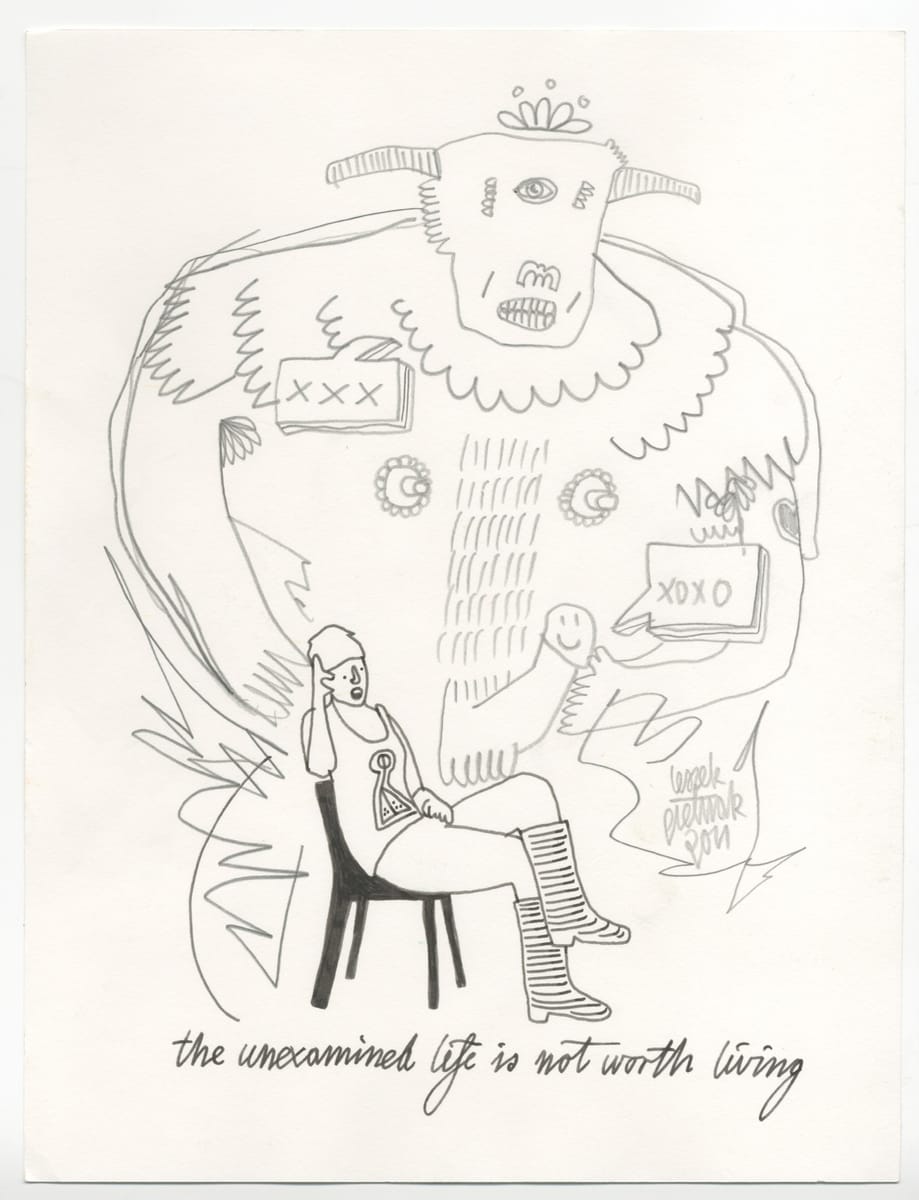 XXX
XOXO
leszek
2011
the unexamined life is not worth living